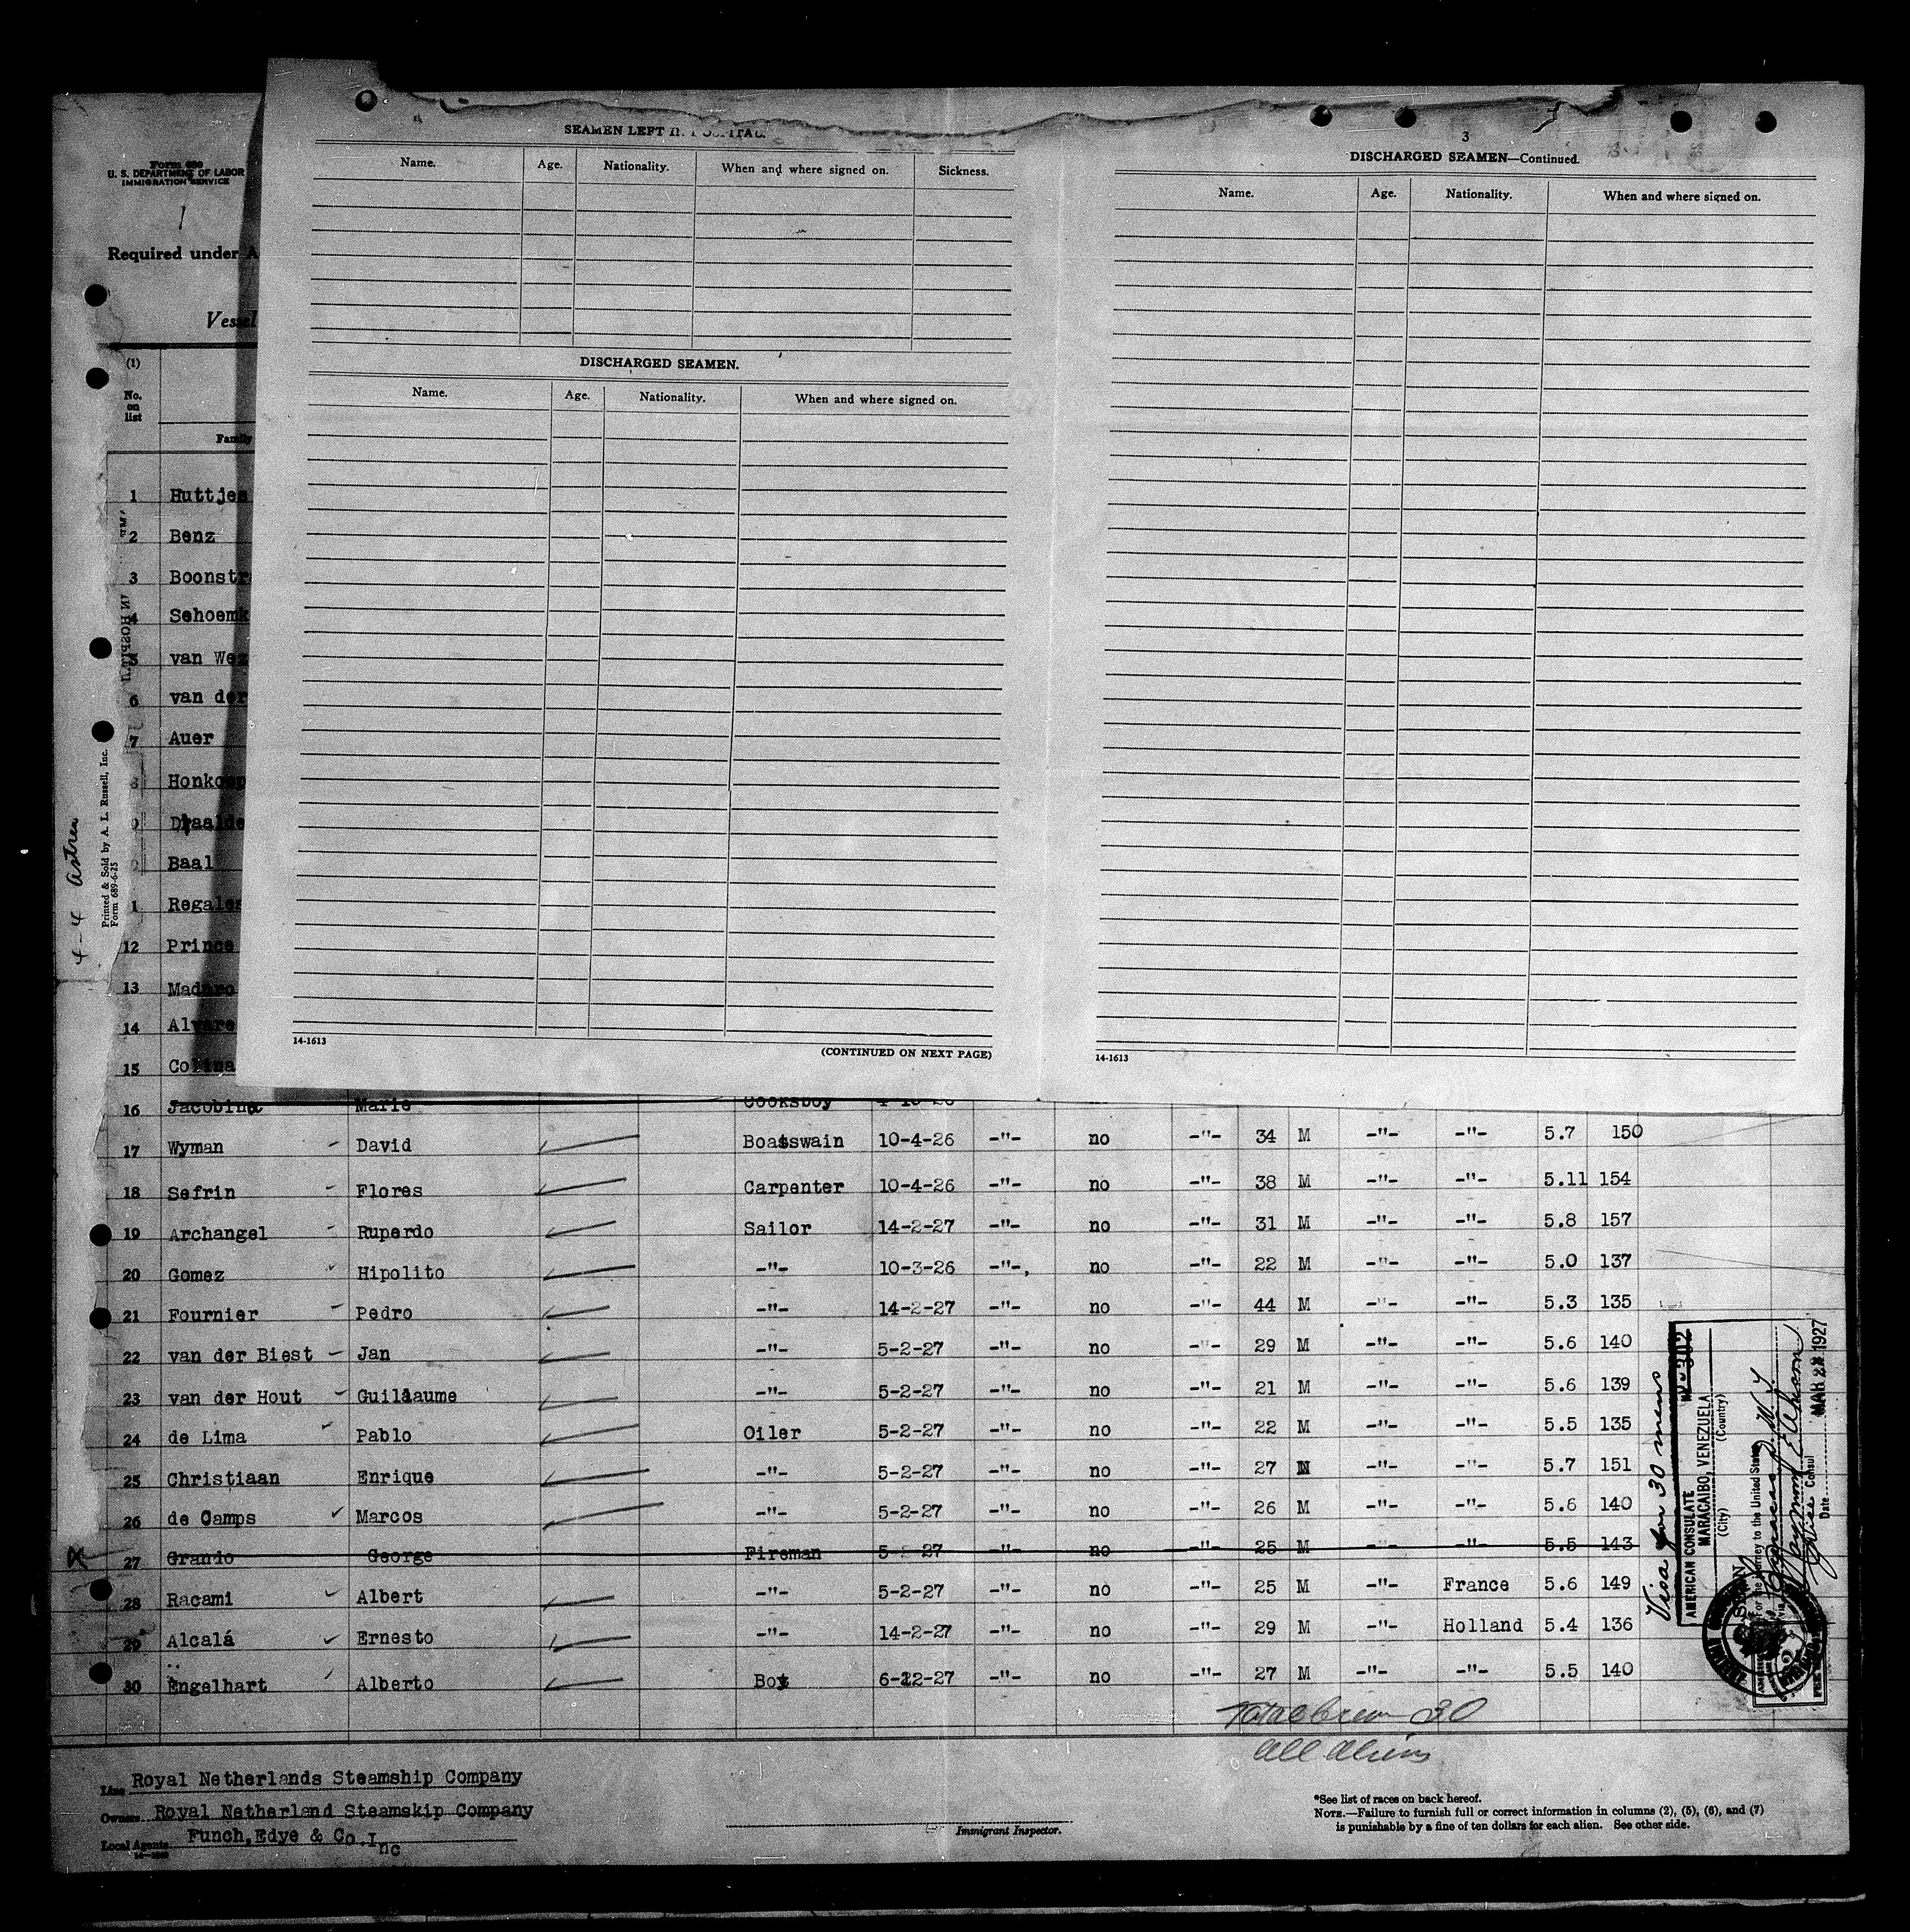 Form 689
U. S. DEPARTMENT OF LABOR
IMMIGRATION SERVICE
1
Required under A
Vessel
(1)
No.
on
list
Family
SEAMEN LEFT
Name. Age. Nationality. When and where signed on. Sickness.
DISCHARGED SEAMEN.
Name. Age. Nationality. When and where signed on.
14-1613
(CONTINUED ON NEXT PAGE)
3
DISCHARGED SEAMEN—Continued.
Name. Age. Nationality. When and where signed on.
14-1613
1 Huttjes
2 Benz
3 Boonstr
4 Schoemk
5 van Wez
6 van der
7 Auer
Honkoop
Draalde
Baal
1 Regales
12 Prince
13 Maduro
14 Alvare
15 Colina
16 Jacobina Marie Cooksboy
17 Wyman David Boatswain 10-4-26 -"- no -"- 34 M -"- -"- 5.7 150
18 Sefrin Flores Carpenter 10-4-26 -"- no -"- 38 M -"- -"- 5.11 154
19 Archangel Ruperdo Sailor 14-2-27 -"- no -"- 31 M -"- -"- 5.8 157
20 Gomez Hipolito -"- 10-3-26 -"- no -"- 22 M -"- -"- 5.0 137
21 Fournier Pedro -"- 14-2-27 -"- no -"- 44 M -"- -"- 5.3 135
22 van der Biest Jan -"- 5-2-27 -"- no -"- 29 M -"- -"- 5.6 140
23 van der Hout Guillaume -"- 5-2-27 -"- no -"- 21 M -"- -"- 5.6 139
24 de Lima Pablo Oiler 5-2-27 -"- no -"- 22 M -"- -"- 5.5 135
25 Christiaan Enrique -"- 5-2-27 -"- no -"- 27 M -"- -"- 5.7 151
26 de Camps Marcos -"- 5-2-27 -"- no -"- 26 M -"- -"- 5.6 140
27 Grando George Fireman 5-2-27 -"- no -"- 25 M -"- -"- 5.5 143
28 Racami Albert -"- 5-2-27 -"- no -"- 25 M -"- France 5.6 149
29 Alcalá Ernesto -"- 14-2-27 -"- no -"- 29 M -"- Holland 5.4 136
30 Engelhart Alberto Boy 6-12-27 -"- no -"- 27 M -"- -"- 5.5 140
Total Crew 30
All Aliens
Line Royal Netherlands Steamship Company
Owners Royal Netherland Steamskip Company
Local Agents Funch,Edye & Co.Inc
Immigrant Inspector.
*See list of races on back hereof.
NOTE.—Failure to furnish full or correct information in columns (2), (5), (6), and (7)
is punishable by a fine of ten dollars for each alien. See other side.
4-4 Astrea
Printed & Sold by A. L. Russell, Inc.
Form 689-6-25
IN HOSPITAL
Visa for 30 mens
No 302
AMERICAN CONSULATE
MARACAIBO, VENEZUELA
(City) (Country)
For the journey to the United States
Vice Consul
Date MAR 22 1927